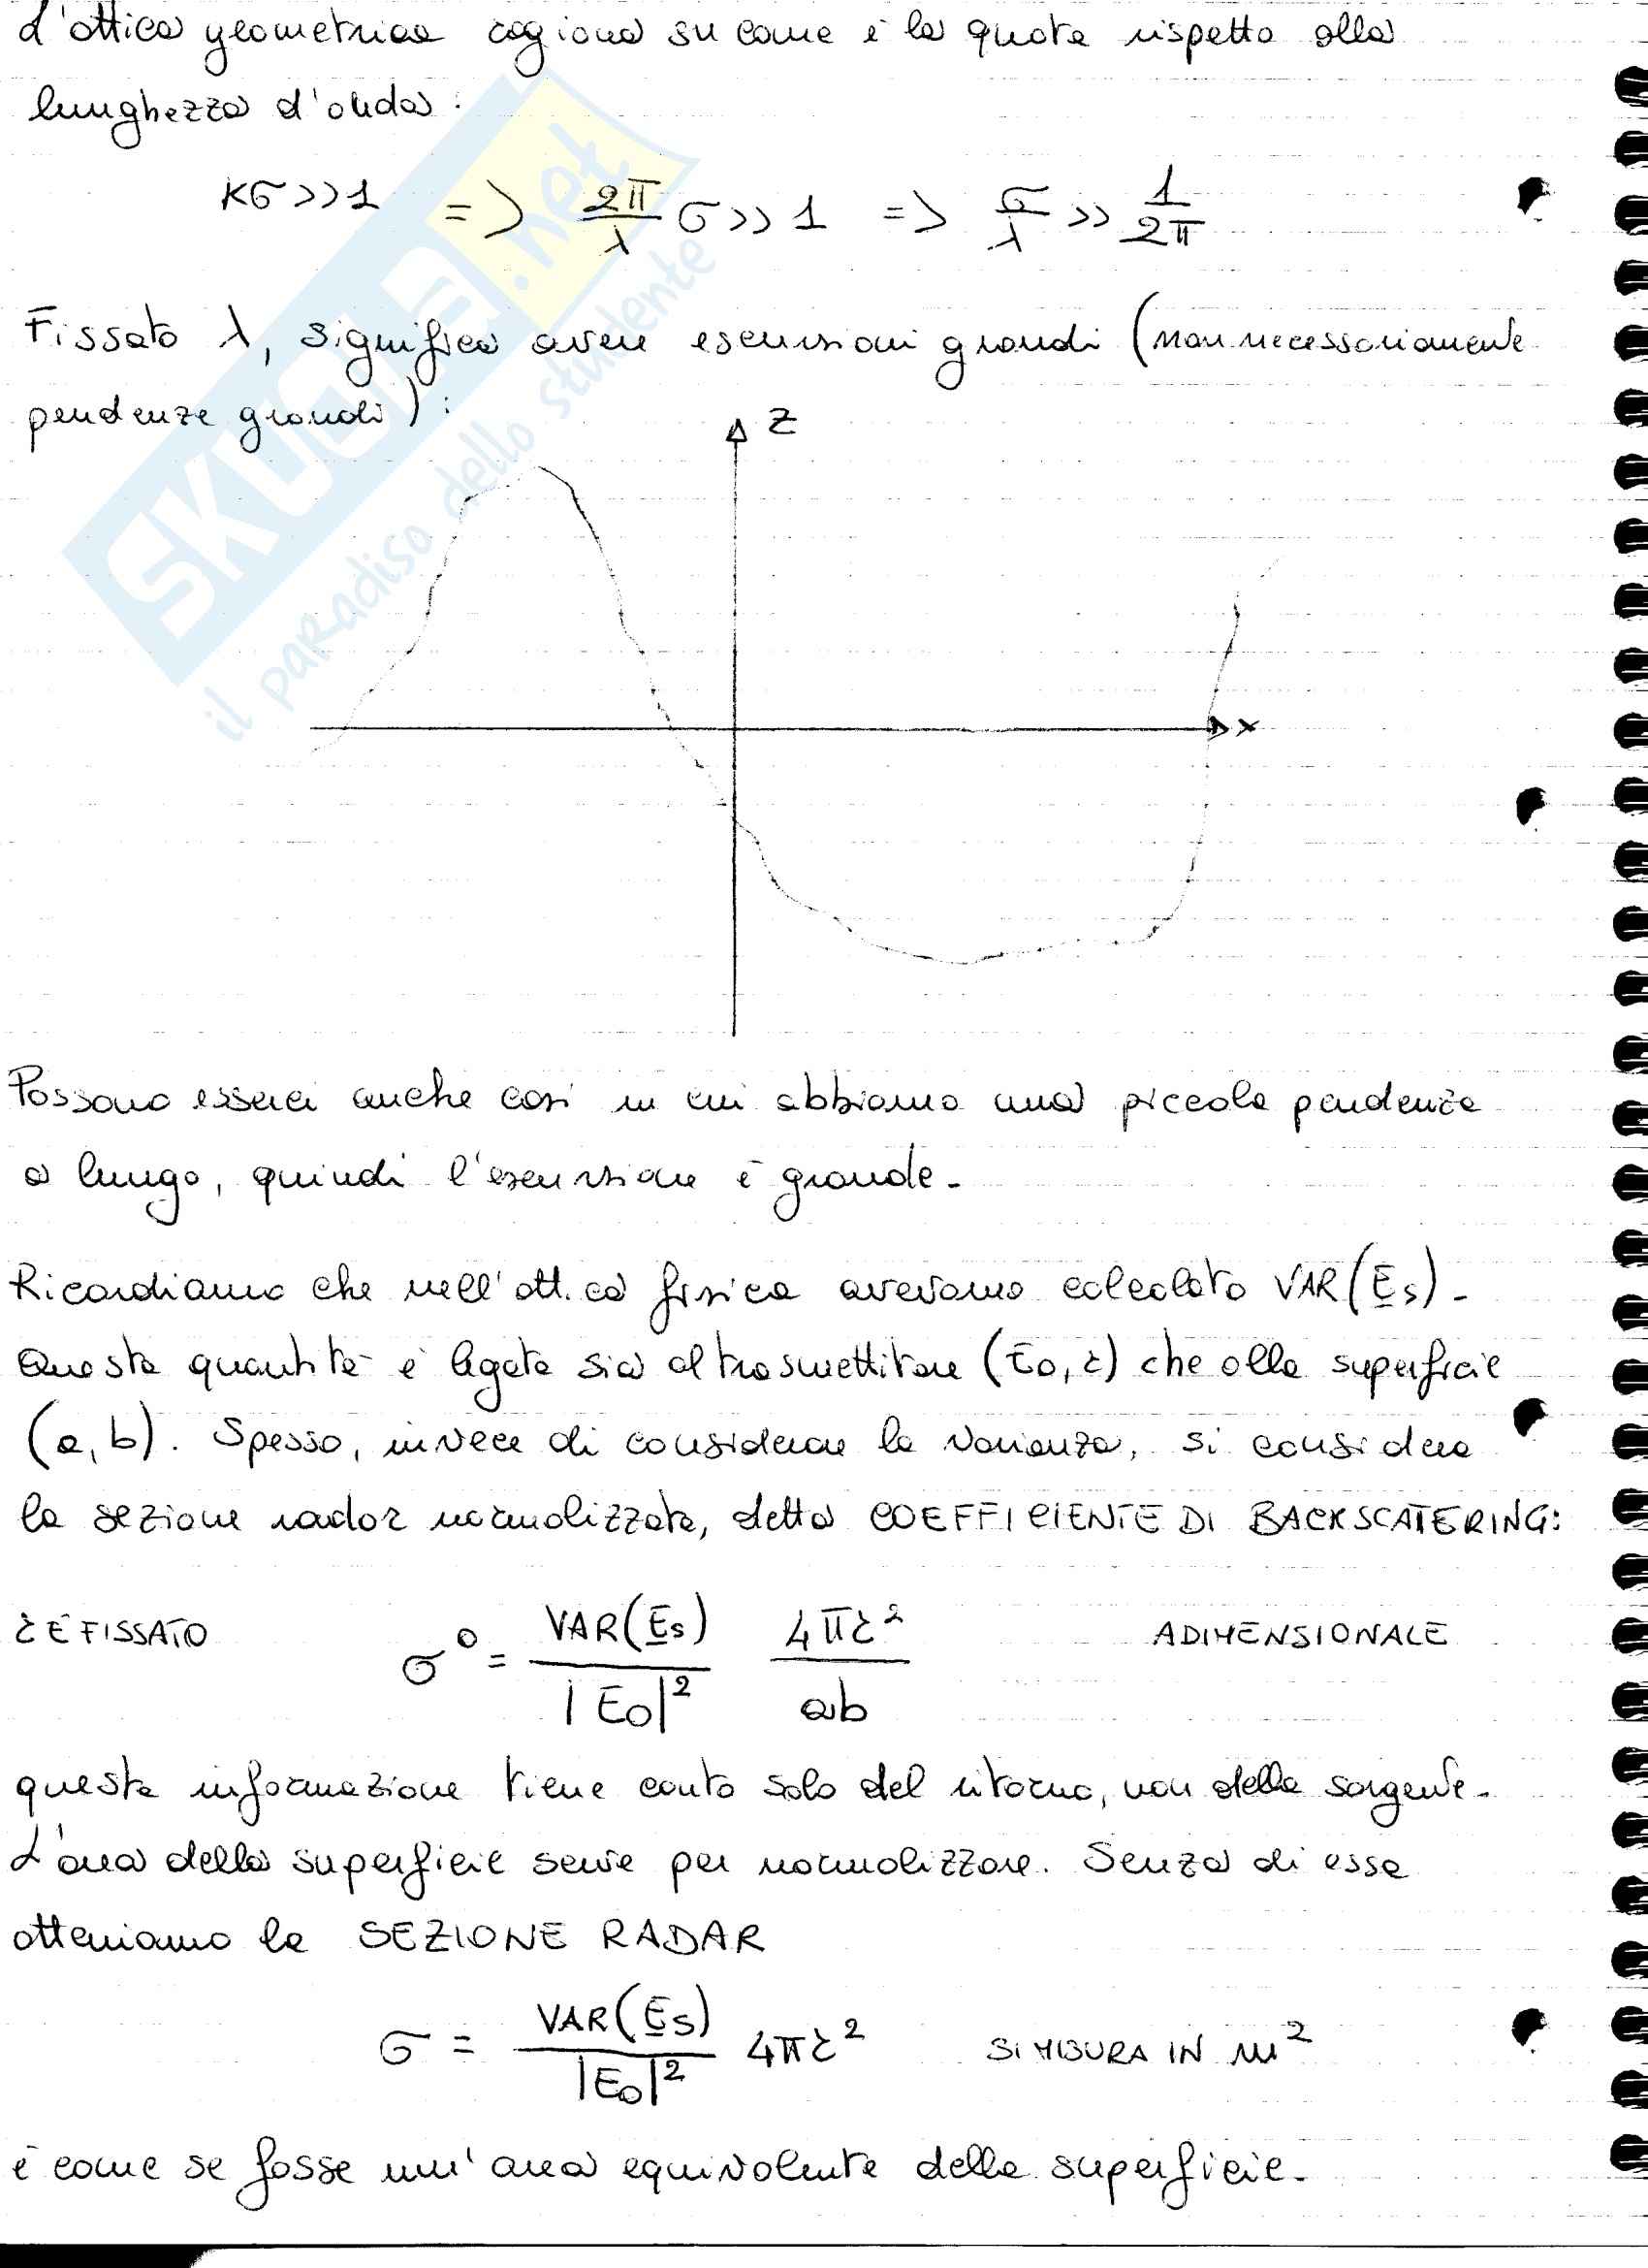 L'ottica geometrica ragiona su come è la quota rispetto alla
lunghezza d'onda:
Kσ >> 1 => 2π/λ σ >> 1 => σ/λ >> 1/2π
Fissato λ, significa avere escursioni grandi (non necessariamente
pendenze grandi):
z
x
Possono esserci anche casi in cui abbiamo una piccola pendenza
a lungo, quindi l'escursione è grande.
Ricordiamo che nell'ottica fisica avevamo calcolato VAR(Es).
Questa quantità è legata sia al trasmettitore (E0, r) che alla superficie
(a, b). Spesso, invece di considerare la varianza, si considera
la sezione radar normalizzata, detta COEFFICIENTE DI BACKSCATERING:
r È FISSATO σ° = VAR(Es)/|E0|² 4πr²/ab ADIMENSIONALE
questa informazione tiene conto solo del ritorno, non della sorgente.
L'area della superficie serve per normalizzare. Senza di essa
otteniamo la SEZIONE RADAR
σ = VAR(Es)/|E0|² 4πr² SI MISURA IN m²
è come se fosse un'area equivalente della superficie.
SKUOLA.net
il paradiso dello studente